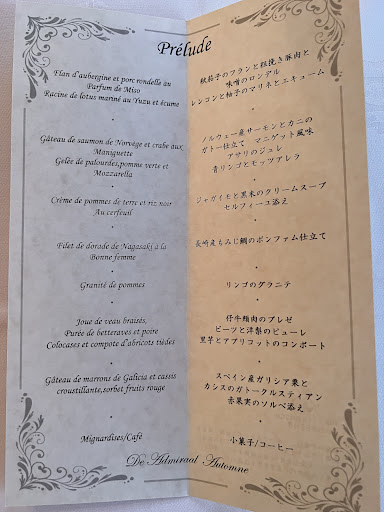 Prélude
Flan d'aubergine et porc rondelle au
Parfum de Miso
Racine de lotus mariné au Yuzu et écume
Gâteau de saumon de Norvège et crabe aux
Maniguette
Gelée de palourdes,pomme verte et
Mozzarella
Crème de pommes de terre et riz noir
Au cerfeuil
Filet de dorade de Nagasaki à la
Bonne femme
Granité de pommes
Joue de veau braisés,
Purée de betteraves et poire
Colocases et compote d'abricots tièdes
Gâteau de marrons de Galicia et cassis
croustillante,sorbet fruits rouge
Mignardises/Café
秋茄子のフランと粗挽き豚肉と
味噌のロンデル
レンコンと柚子のマリネとエキューム
ノルウェー産サーモンとカニの
ガトー仕立て マニゲット風味
アサリのジュレ
青リンゴとモッツアレラ
ジャガイモと黒米のクリームスープ
セルフィーユ添え
長崎産もみじ鯛のボンファム仕立て
リンゴのグラニテ
仔牛頬肉のブレゼ
ビーツと洋梨のピューレ
黒芋とアプリコットのコンポート
スペイン産ガリシア栗と
カシスのガトークルスティアン
赤果実のソルベ添え
小菓子/コーヒー
De Admiraal Automne